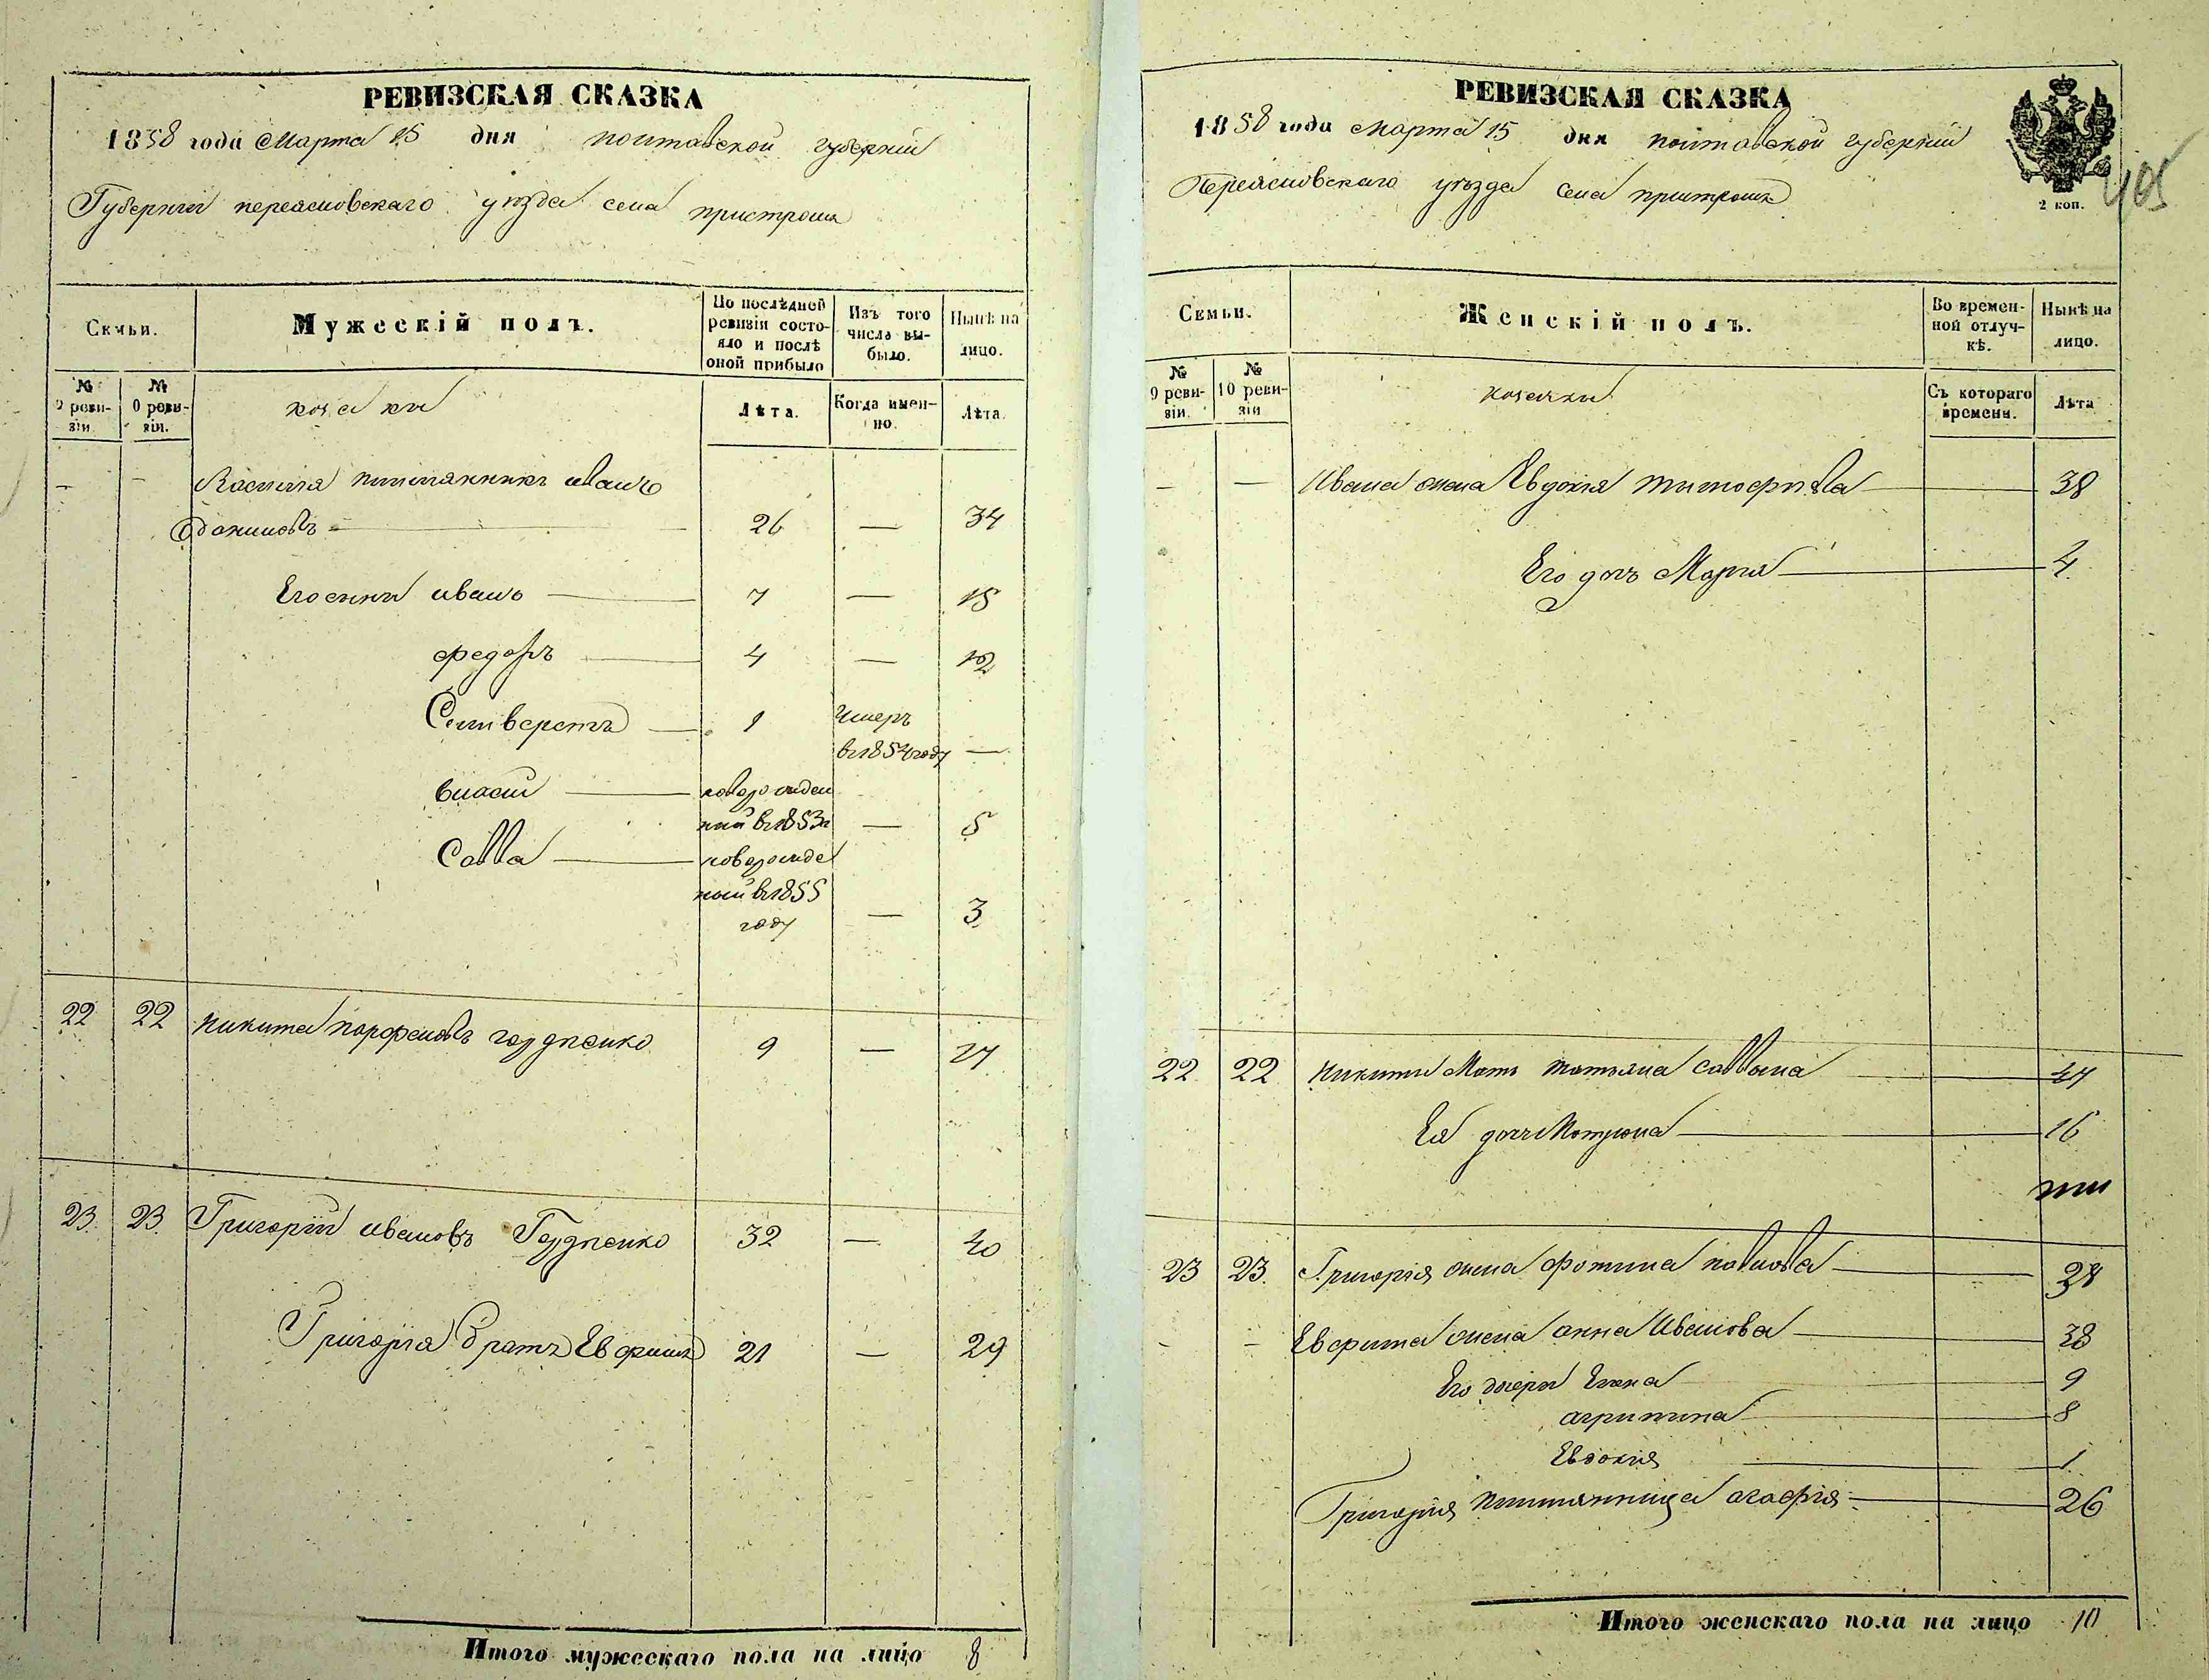 РЕВИЗСКАЯ СКАЗКА
1858 года Марта 15 дня полтавской губернии
Губернии переясловского уѣзда села пристромъ
Семьи.
Мужескій полъ.
По послѣдней ревизіи состояло и послѣ оной прибыло
Изъ того числа выбыло.
Нынѣ на лицо.
№ 9 ревизіи.
№ 10 ревизіи.
козаки
Лѣта.
Когда именно.
Лѣта.
— — Василия питмянникъ иванъ
даниловъ — 26 — 34
Его сыны иванъ — 7 — 15
федоръ — 4 — 12
Селиверстъ — 1 Умеръ
в 1854 году —
власий — новорожден
ный в 1853 г — 5
Савва — новорожде
ный в 1855
году — 3
22 22 никита парфеновъ гордиенко 9 — 17
23 23 Григорий ивановъ Гордиенко 32 — 40
Григория братъ Евфимъ 21 — 29
Итого мужескаго пола на лицо 8
РЕВИЗСКАЯ СКАЗКА
1858 года марта 15 дня полтавской губернии
Переясловского уѣзда села пристромъ
2 коп.
405
Семьи.
Женскій полъ.
Во временной отлучкѣ.
Нынѣ на лицо.
№ 9 ревизіи.
№ 10 ревизіи
козачки
Съ котораго времени.
Лѣта
— — Ивана жена Евдокия тимофиева — 38
Его дочь Мария — 4
22 22 никиты Мать татьяна Саввина — 47
Ея дочь Мотрона — 16
23 23 Григория жена фотина павлова — 28
— — Евфима жена анна Иванова — 38
Его дочери Елена 9
агрипина 8
Евдокия 1
Григория питмянница агафия — 26
Итого женскаго пола на лицо 10